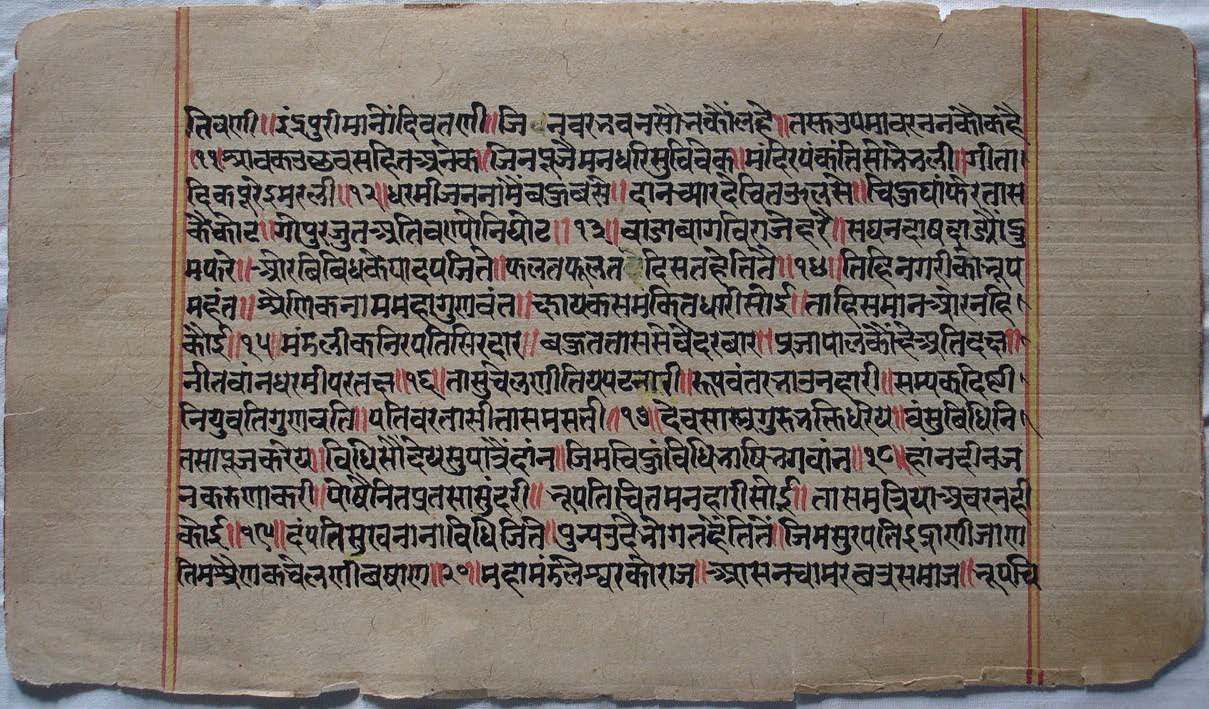 तिवणी॥इंद्रपुरीमानोंदिवतणी॥जिनवरनवनसौनकौंलहै॥तसकउपमावरननकौकहै
॥११॥श्रावकउछवसहितअनेक॥जिनपूजैमनधरिसुविवेक॥मंदिरपंकतिसोनैनली॥गीता
दिकपूरेइमरली॥१२॥धरमीजननामैंबहुबसै॥दानच्यारदेचितऊलसै॥चिहुघांफेरतास
कैकोट॥गोपुरजुतअतिवण्योनिघोट॥१३॥वाडाबागविराजेहरै॥सघनदाष
मफरे॥औरबिबिधकेपादपजिते॥फलतफूलतदिसतहैतिते॥१४॥तिहिनगरीकोनृप
महंत॥श्रेणिकनाममहागुणवंत॥क्षायकसमकितधारीसोई॥ताहिसमानऔरनहि
कोई॥१५॥मंडलीकनिरपतिसिरदार॥बहुततासुसेवैदरबार॥प्रजापालकौंहैअतिदक्ष॥
नीतवांनधरमीपरतक्ष॥१६॥तासुचेलणीतियपटनारी॥रूपवंतरंनाउनहारी॥सम्यकदिष्टी
नियुवतिगुणवति॥पतिवरतासीतासमसती॥१७॥देवसास्त्रगुरुनक्तिधरेय॥वसुबिधिनि
तसापूजकरेय॥विधिसौंदेयसुपात्रेंदांन॥जिमचिहुंविधिनाषिनगवांन॥१८॥हांनदीनज
नकरुणाकरी॥पोषैनितप्रतसासुंदरी॥नृपतिचितमनहारीसोई॥तासमत्रियाअवरनही
कोई॥१९॥दंपतिसुखनानाविधिजिते॥पुन्यउदैनोगतहैतिते॥जिमसुरपतिइंद्राणीजाण
तिमश्रेणकचेलणीबषाण॥२०॥महामंडलेश्वरकोराज॥आसनचामरछत्रसमाज॥नृपचि